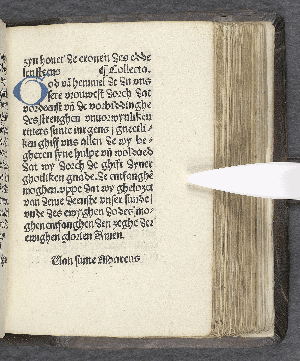 syn houet de cronen des edde
lensteens ¶ Collecta.
God vā hemmel de du vns
sere vrouwest dorch dat
vordenst vn̄ de vorbiddinghe
des strenghen vnuorwynliken
ritters sunte iurgens ghnedi-
ken ghiff vns allen de wy be-
gheren syne hulpe vn̄ woldaed
dat wy dorch de ghift dyner
ghotliken gnade de entfanghē
moghen. vppe dat wy gheloset
van deme deenste vnser sunde
vnde des ewyghen dodes mo-
ghen entfanghen den zeghe der
ewighen glorien Amen.
Van sunte Marcus